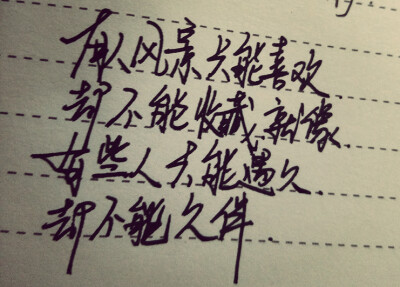 有人风景只能喜欢
却不能收藏就像
有些人只能遇见
却不能久伴